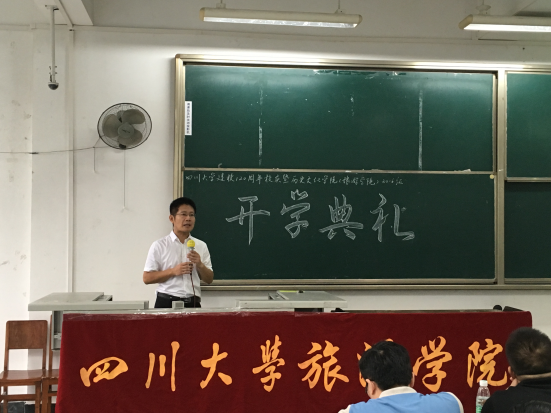 四川大学建校120周年校庆暨历史文化学院(旅游学院)
开学典礼
四川大學旅游学院